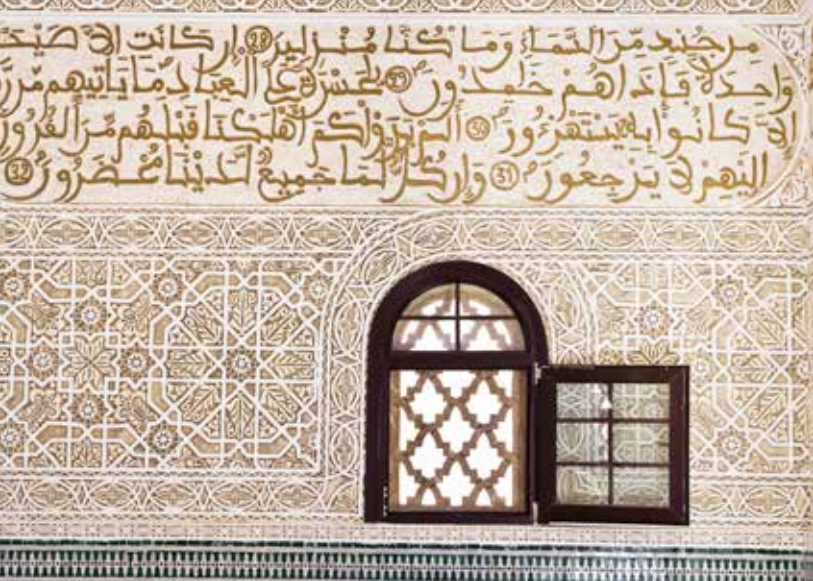 من جند من السماء وما كنا منزلين 28 إن كانت إلا صيحة
واحدة فإذا هم خمدون 29 يحسرة على العباد ما ياتيهم من
إلا كانوا به يستهزءون 30 ألم يروا كم أهلكنا قبلهم من القرون
إليهم لا يرجعون 31 وإن كل لما جميع لدينا محضرون 32